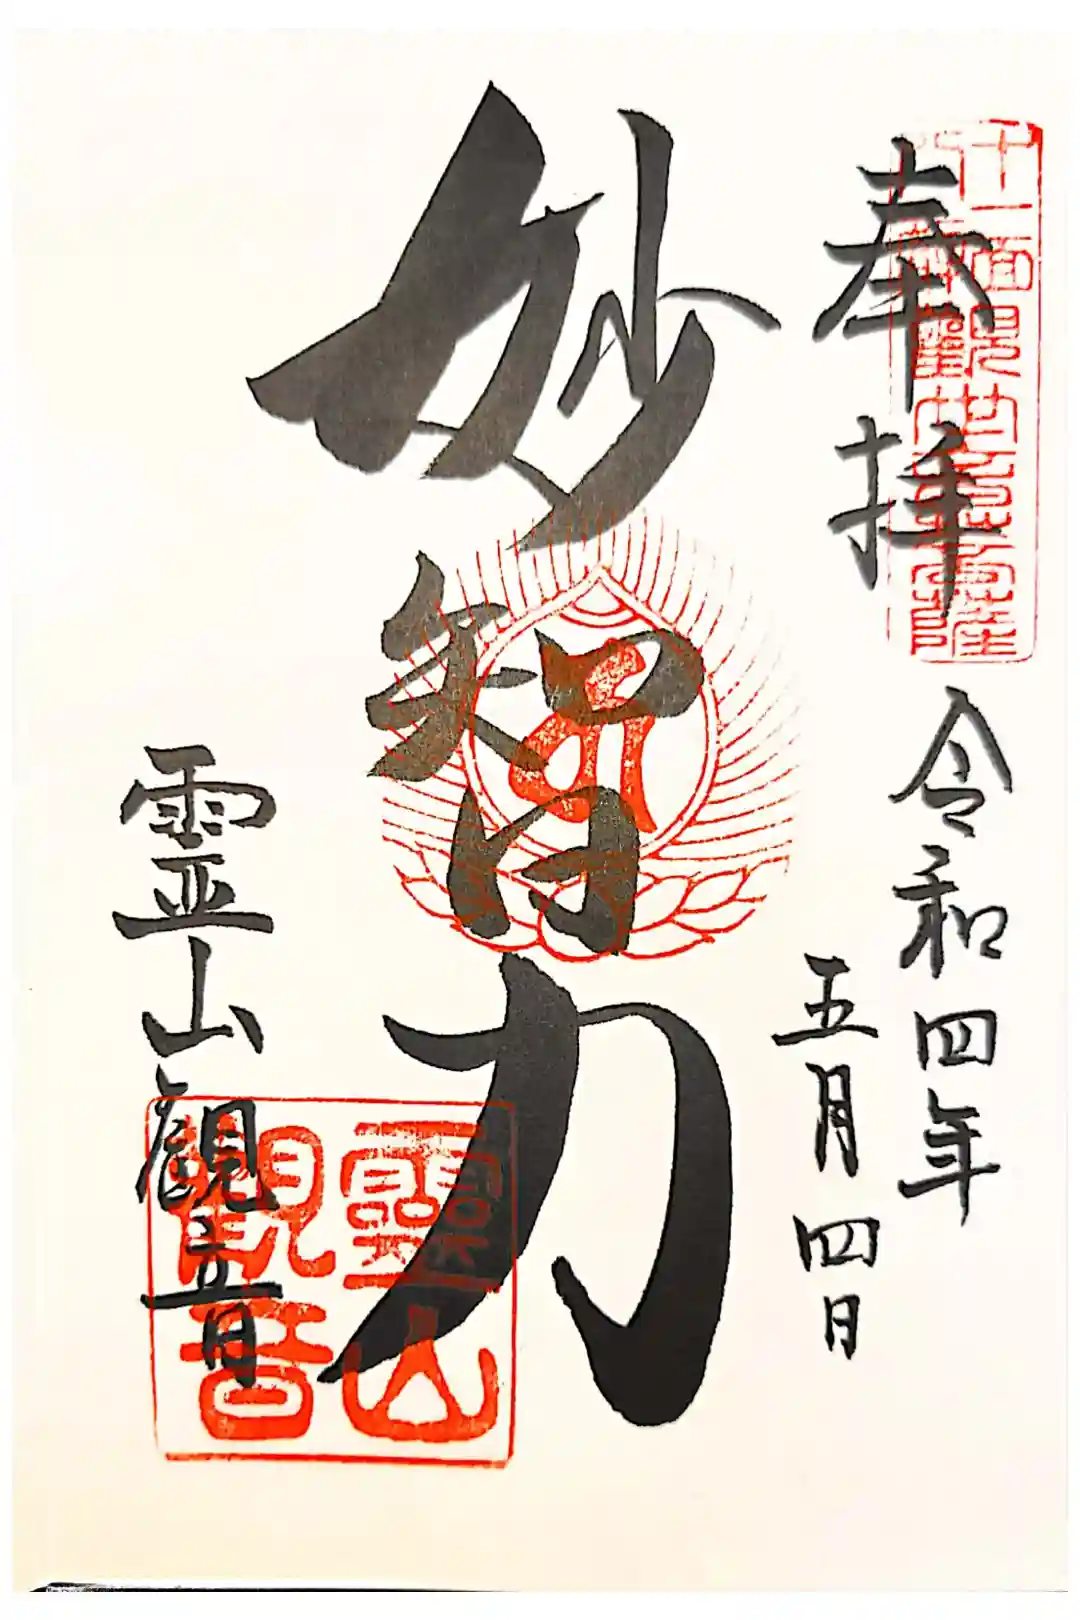 奉拝
令和四年
五月四日
妙智力
霊山観音
十一面観世音
靈山
觀音